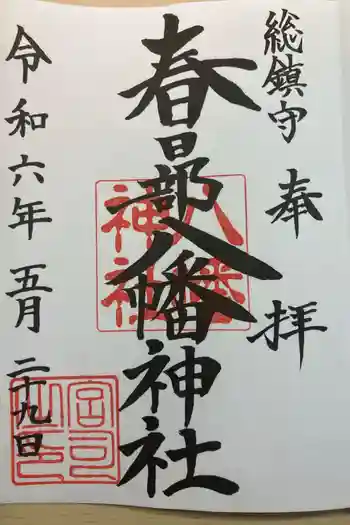 総鎮守 奉拝
春日部八幡神社
令和六年五月二十九日
八幡神社
宮司之印